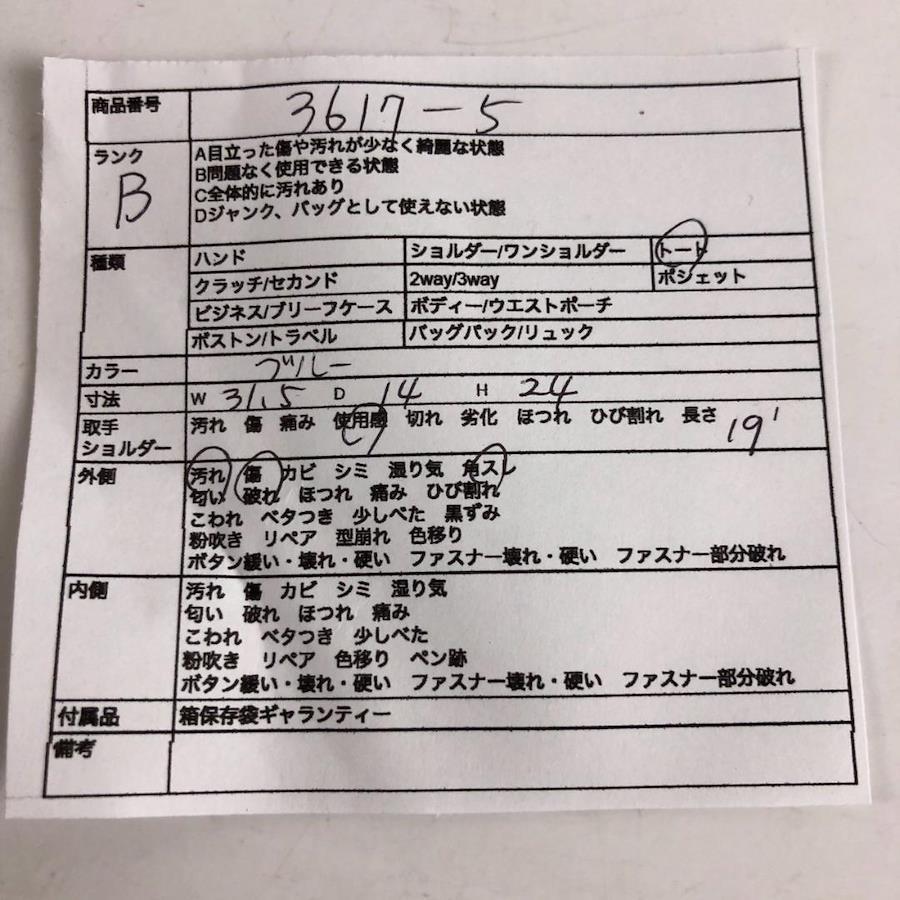 商品番号 3617-5
ランク B
A目立った傷や汚れが少なく綺麗な状態
B問題なく使用できる状態
C全体的に汚れあり
Dジャンク、バッグとして使えない状態
種類 ハンド ショルダー/ワンショルダー トート
クラッチ/セカンド 2way/3way ポシェット
ビジネス/ブリーフケース ボディー/ウエストポーチ
ボストン/トラベル バッグパック/リュック
カラー ブルー
寸法 W 31.5 D 14 H 24
取手 汚れ 傷 痛み 使用感 切れ 劣化 ほつれ ひび割れ 長さ 19
ショルダー
外側 汚れ 傷 カビ シミ 湿り気 角スレ
匂い 破れ ほつれ 痛み ひび割れ
こわれ ベタつき 少しべた 黒ずみ
粉吹き リペア 型崩れ 色移り
ボタン緩い・壊れ・硬い ファスナー壊れ・硬い ファスナー部分破れ
内側 汚れ 傷 カビ シミ 湿り気
匂い 破れ ほつれ 痛み
こわれ ベタつき 少しべた
粉吹き リペア 色移り ペン跡
ボタン緩い・壊れ・硬い ファスナー壊れ・硬い ファスナー部分破れ
付属品 箱保存袋ギャランティー
備考